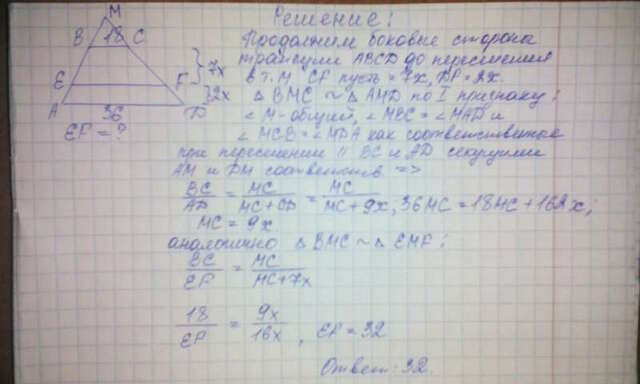 Решение:
M
B 18 C
E F
} 7x
} 2x
A 36 D
EF = ?
Продолжим боковые стороны
трапеции ABCD до пересечения
в т. M. CF пусть = 7x, DF = 2x.
△ BMC ~ △ AMD по I признаку:
∠ M - общий, ∠ MBC = ∠ MAD и
∠ MCB = ∠ MDA как соответственные
при пересечении || BC и AD секущими
AM и DM соответств =>
BC/AD = MC/MC+CD = MC/MC+9x; 36MC = 18MC + 162x;
MC = 9x
аналогично △ BMC ~ △ EMF:
BC/EF = MC/MC+7x
18/EF = 9x/16x, EF = 32
Ответ: 32.